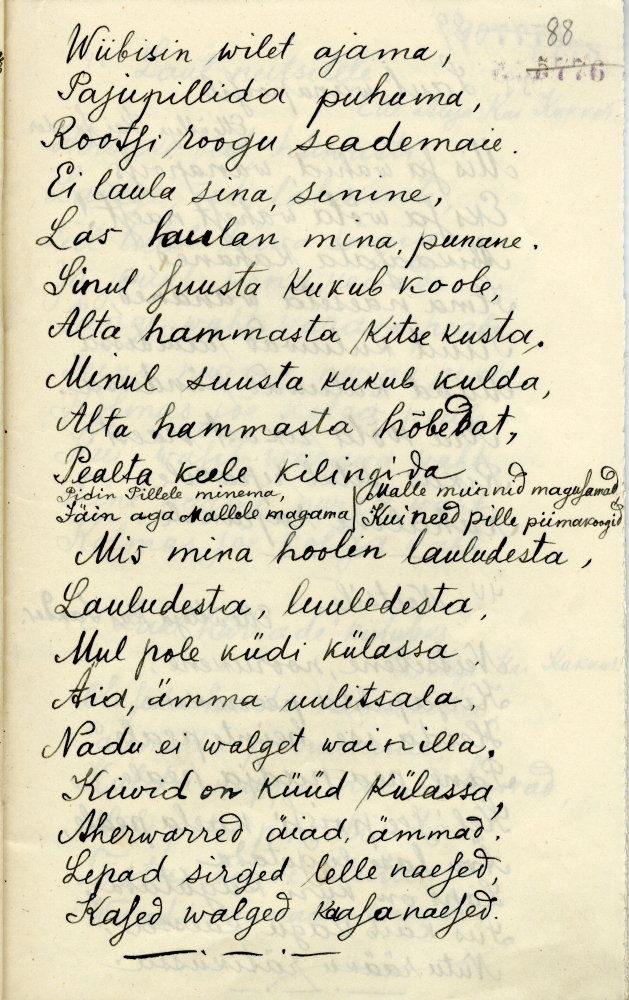 88
5776
Wiibisin wilet ajama,
Pajupillida puhuma,
Rootsi roogu seademaie.
Ei laula sina, sinine,
Las laulan mina, punane.
Sinul suusta kukub koole,
Alta hammasta kitse kusta.
Minul suusta kukub kulda,
Alta hammasta hõbedat,
Pealta keele kilingida
Pidin Pillele minema,
Jäin aga Mallele magama
Malle munnid magusamad,
Kui need pille piimakoogid
Mis mina hoolin lauludesta,
Lauludesta, luuledesta,
Mul pole küdi külassa,
Äid, ämma uulitsala,
Nadu ei walget wainilla.
Kiwid on küüd külassa,
Aherwarred äiad, ämmad.
Lepad sirged lelle naesed,
Kased walged kaasanaesed.